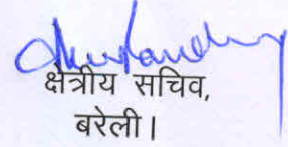 क्षेत्रीय सचिव,
बरेली।